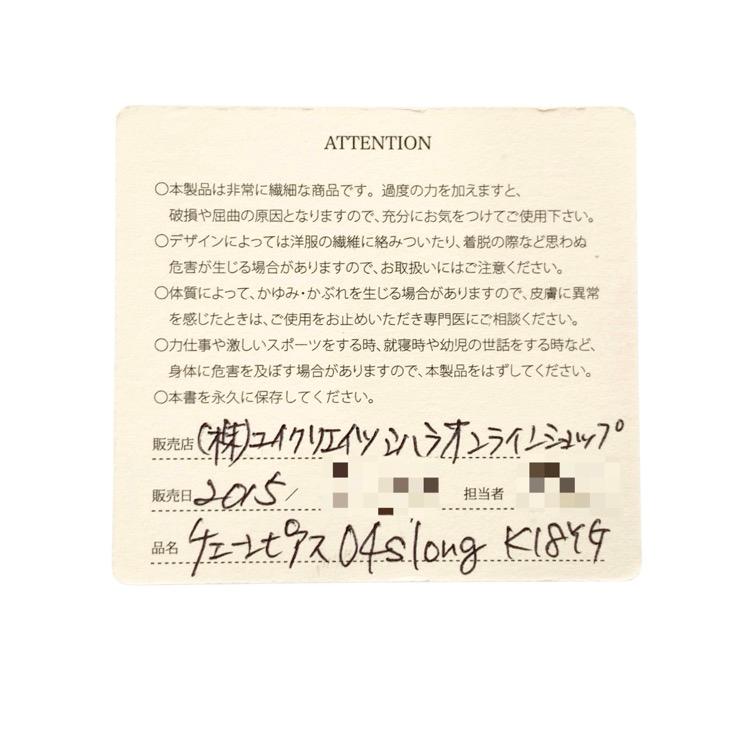 ATTENTION
○本製品は非常に繊細な商品です。過度の力を加えますと、
破損や屈曲の原因となりますので、充分にお気をつけてご使用下さい。
○デザインによっては洋服の繊維に絡みついたり、着脱の際など思わぬ
危害が生じる場合がありますので、お取扱いにはご注意ください。
○体質によって、かゆみ・かぶれを生じる場合がありますので、皮膚に異常
を感じたときは、ご使用をお止めいただき専門医にご相談ください。
○力仕事や激しいスポーツをする時、就寝時や幼児の世話をする時など、
身体に危害を及ぼす場合がありますので、本製品をはずしてください。
○本書を永久に保存してください。
販売店 (株)エイクリエイツ シハラオンラインショップ
販売日 2015/ 担当者
品名 チェーンピアス 04s'long K18YG